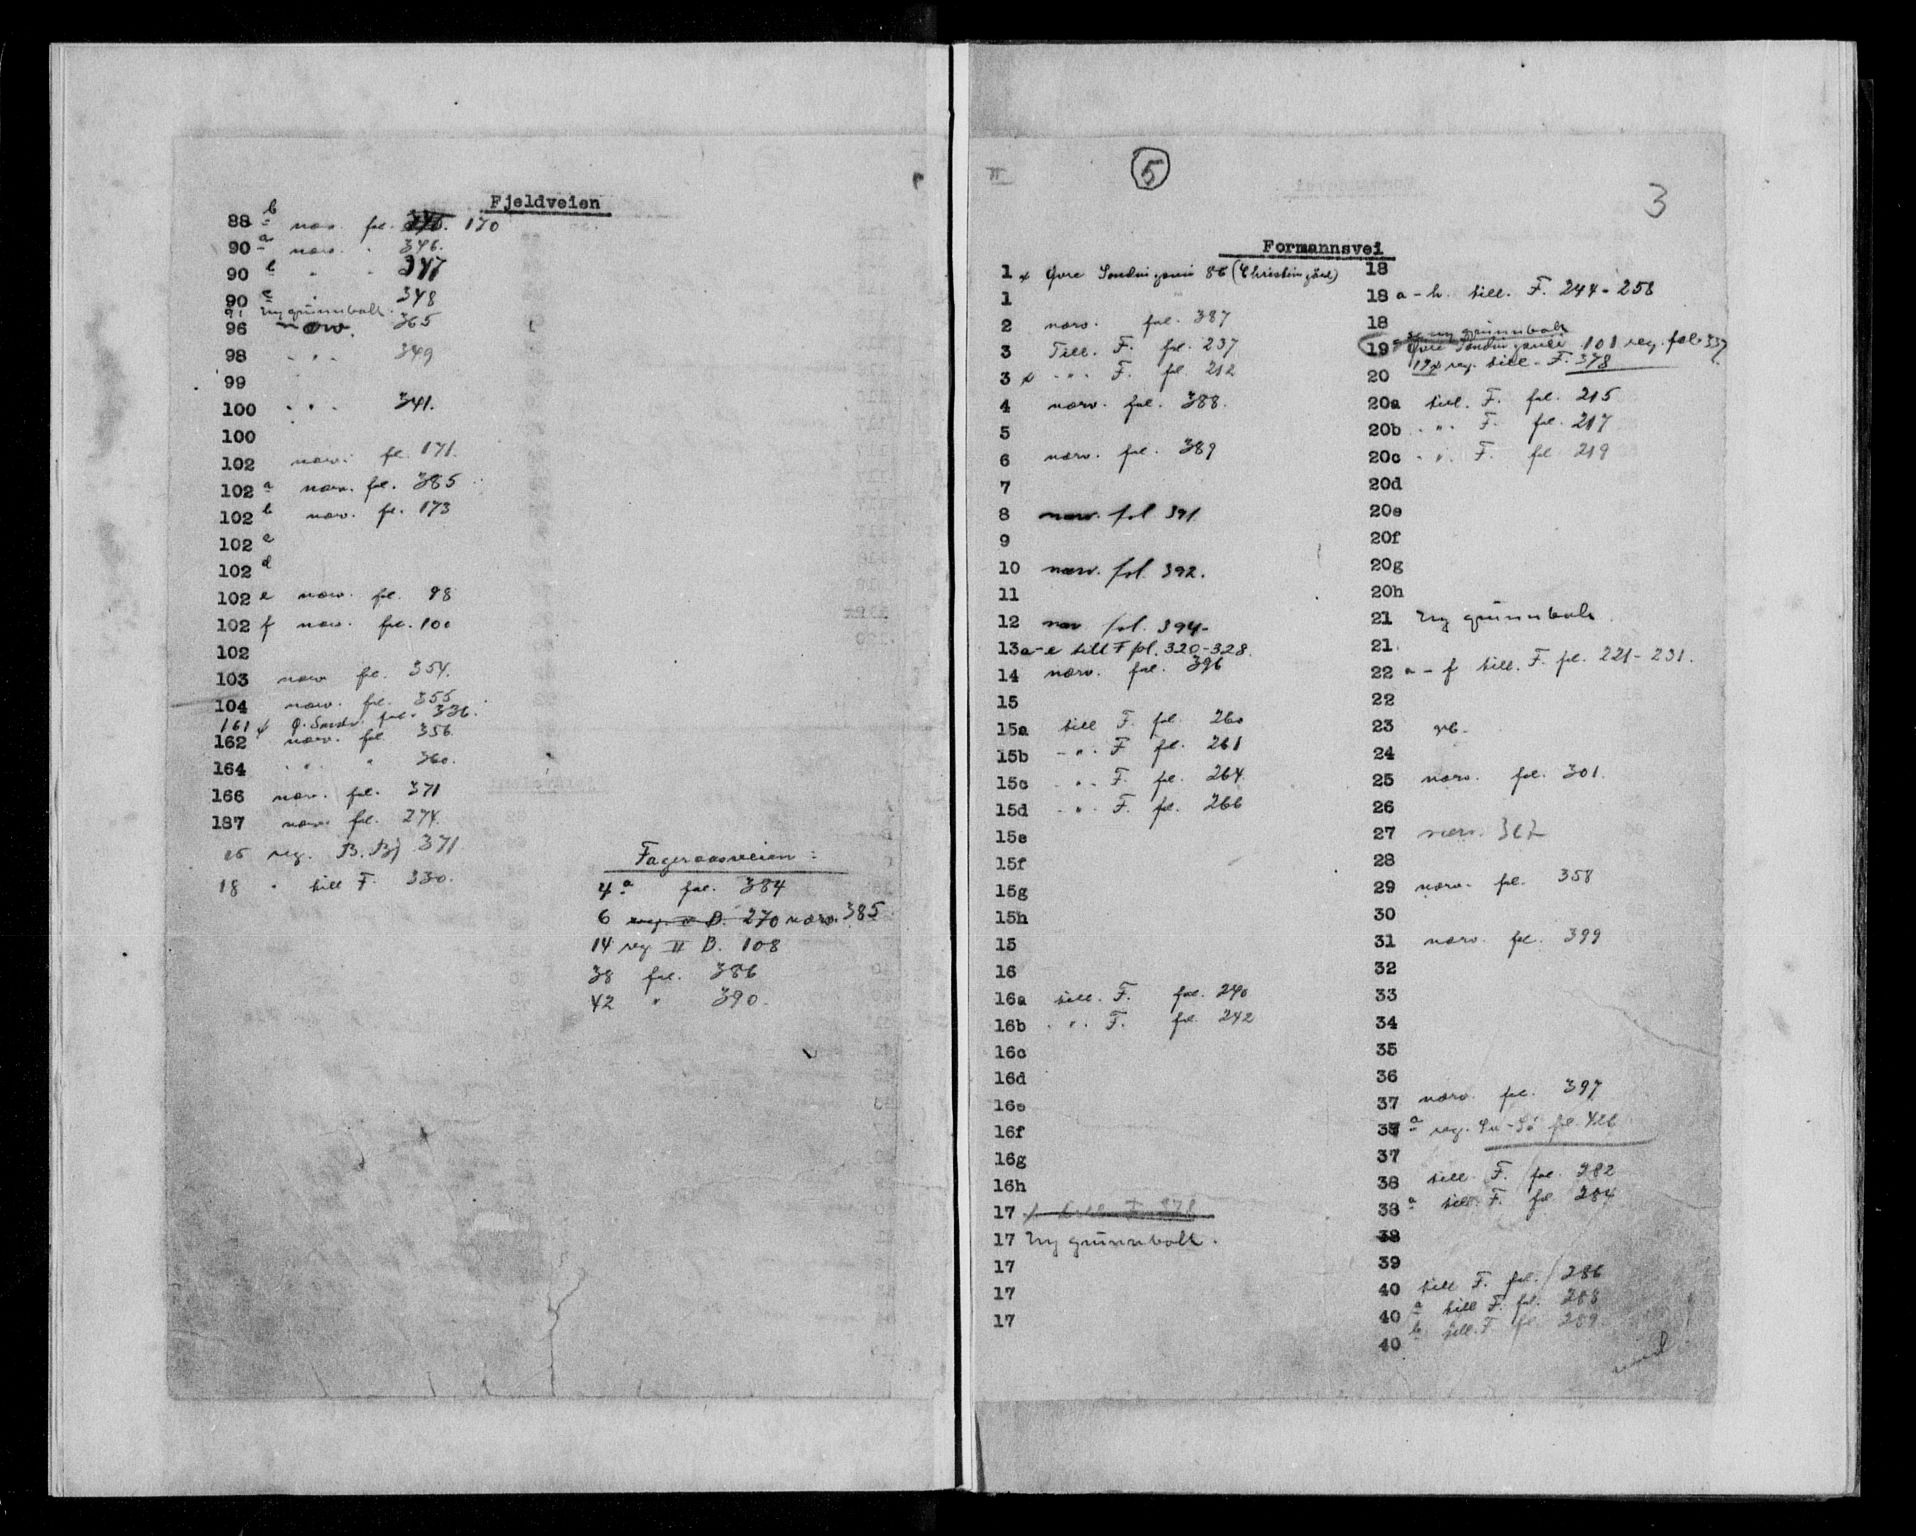 Fjeldveien
88 b næv. fol. 170
90 a næv. " 346.
90 b " " 347
90 c " 348
91 Ny grunnbok.
96 næv. 365
98 - " - 349
99
100 - " - 341.
100
102 næv. fol. 171.
102 a næv. fol. 385
102 b næv. fol. 173
102 c
102 d
102 e næv. fol. 98
102 f næv. fol. 100
102
103 næv fol. 354.
104 næv. fol. 355
161 x Ø. Sandv. fol. 336.
162 næv. fol. 356
164 - " - " 360.
166 næv. fol. 371
187 næv. fol. 274.
reg. B. Bj 371
18 " till F. 330.
Fageraasveien :
4 a fol. 384
6 reg. II B. 270 næv. 385
14 reg II B. 108
38 fol. 386
42 " 390.
II
5
3
Formannsvei
1 x Øvre Sandvigsvei 86 (Christinegård)
1
2 næv. fol. 387
3 Till. F. fol. 237
3 x - " - F. fol. 212
4 næv. fol. 388.
5
6 næv. fol. 389
7
8 næv. fol 391
9
10 næv. fol. 392.
11
12 næv fol. 394-
13 a-e till F fol. 320-328.
14 næv. fol. 396
15
15a till F. fol. 260
15b - " - F fol. 261
15c - " - F. fol. 264.
15d - " - F. fol. 266
15e
15f
15g
15h
15
16
16a till. F. fol. 240
16b - " - F. fol. 242
16c
16d
16e
16f
16g
16h
17
17 Ny grunnbok.
17
17
17
18
18 a-h. till. F. 244-258
18
se ny grunnbok
19 Øvre Sandvigsvei 101 reg. fol. 337
19x reg. till. F. 378
20
20a till. F. fol. 215
20b - " - F. fol. 217
20c - " - F. fol 219
20d
20e
20f
20g
20h
21 Ny grunnbok.
21
22 a-f till. F. fol. 221-231.
22
23
24
25 næv. fol. 301.
26
27 næv. 367
28
29 næv. fol. 358
30
31 næv. fol. 399
32
33
34
35
36
37 næv. fol. 397
37 a reg. fol. 426
37
38 till. F. fol. 282
38 a till. F. fol 284
38
39
40 till F. fol. 286
40 a till F. fol. 288
40 b till. F fol 289.